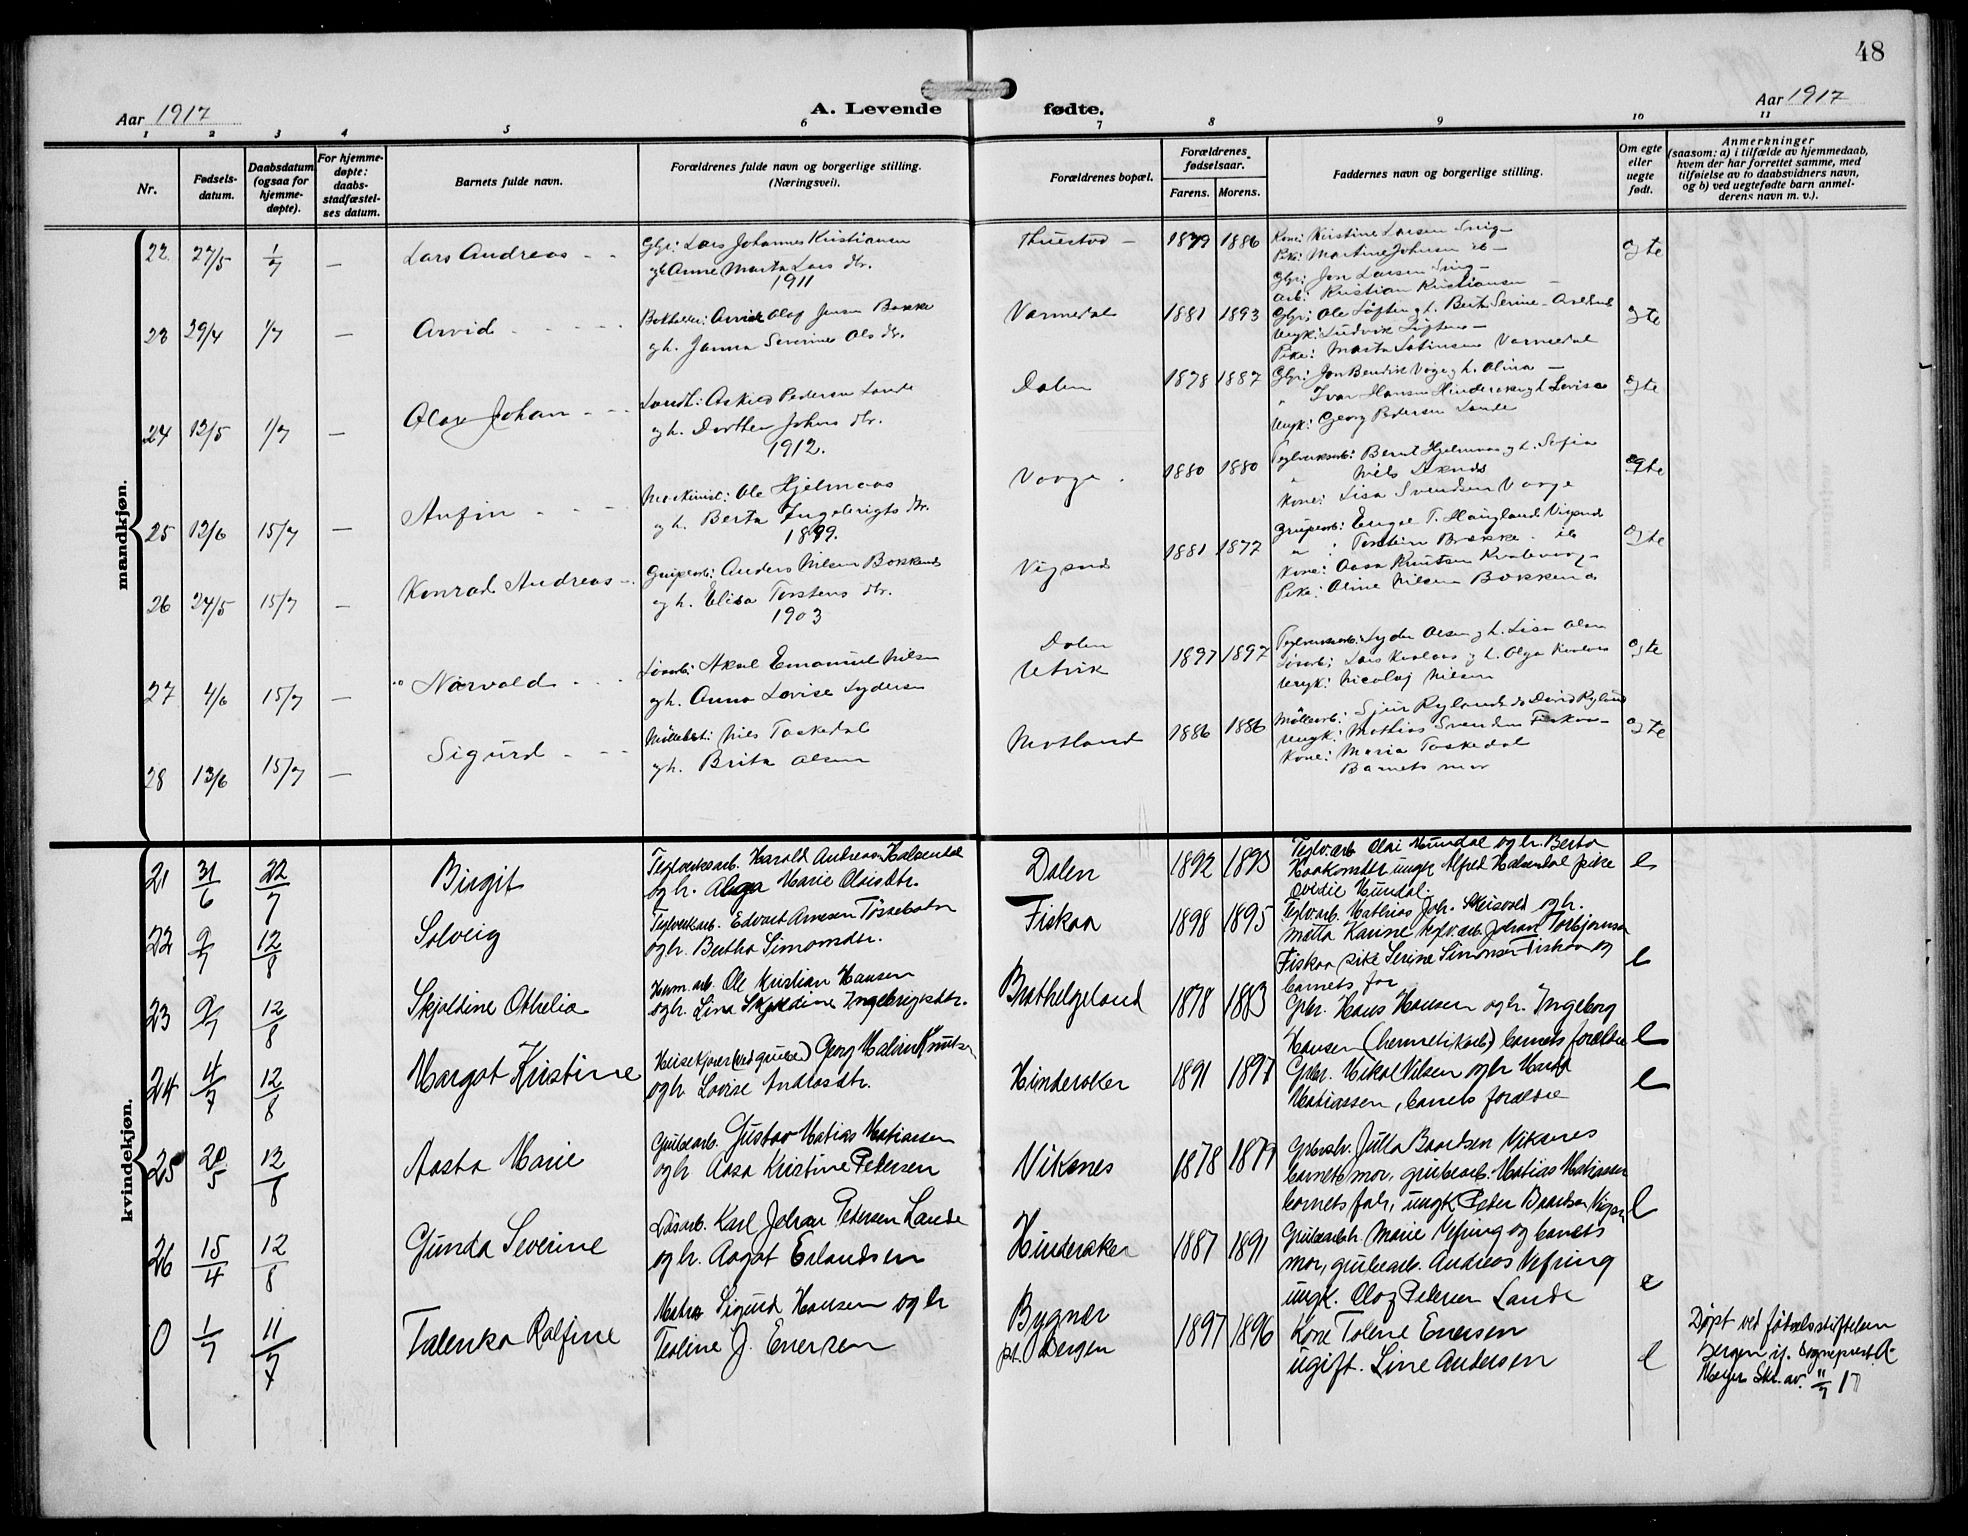 48
Aar 1917
A. Levende fødte.
Aar 1917
1 2 3 4 5 6 7 8 9 10 11
Nr.
Fødsels-
datum.
Daabsdatum
(ogsaa for
hjemme-
døpte).
For hjemme-
døpte:
daabs-
stadfæstel-
ses datum.
Barnets fulde navn.
Forældrenes fulde navn og borgerlige stilling.
(Næringsvei).
Forældrenes bopæl.
Forældrenes
fødselsaar.
Farens. Morens.
Faddernes navn og borgerlige stilling.
Om egte
eller
uegte
født.
Anmerkninger
(saasom: a) i tilfælde av hjemmedaab,
hvem der har forrettet samme, med
tilføielse av to daabsvidners navn,
og b) ved uegtefødte barn anmel-
derens navn m. v.).
mandkjøn.
22 27/5 1/7 — Lars Andreas
Gbr: Lars Johannes Kristiansen
og h. Anne Marta Lars dtr.
1911
1879 1886
Kone: Kristine Larsen
Pike: Martine Johnsen
Gbr: Jon Larsen
arb: Kristian Kristiansen
egte
23 29/4 1/7 — Arvid
Arvid Olaf Jensen Bokke
og h. Janna Severine Ols dtr.
Varmedal
1881 1893
Gbr: Ole Løften og h. Berta Serine
Ungk: Ludvik Løften
Pike: Marta Varmedal
egte
24 12/5 1/7 — Olav Johan
Askild Pedersen Lande
og h. Dorthea Johns dtr.
1912.
Dalen
1878 1887
Gbr: Jon Bendik Vage og h. Olina
" Ivar Hansen Hinderaker og h. Lovise
Ungk: Georg Pedersen Lande
egte
25 12/6 15/7 — Anfin
Maskinist: Ole Hjelmaas
og h. Berta Ingebrigts dtr.
1899.
Vaage
1880 1880
Teglverksarb: Bernt Hjelmaas og h. Sofia
" Nils
Kone: Lisa Svendsen Vaage
egte
26 24/5 15/7 — Konrad Andreas
Grupearb: Anders Nilsen Bokkend
og h. Elisa Torstens dtr.
1903
Vigsnes
1881 1877
Grupearb: T. Haugland Vigsnes
" : Torstein Brekke
Kone: Aasa Knutsen
Pike: Oline Nilsen Bokken
egte
27 4/6 15/7 — Norvald
Løsarb: Aksel Emanuel Nilsen
og h. Anna Lovise Lydersen
Dalen
Utvik
1897 1897
Teglverksarb: Lyder Olsen og h. Lisa Olsen
Løsarb: Lars Kvalvaas og h. Olga Kvalvaas
Ungk: Nicolaj Nilsen
egte
28 13/6 15/7 — Sigurd
Møllearb: Nils Taskedal
og h. Brita Olsen
Motland
1886 1886
Møllearb: Sjur Ryland do David Rylund
Ungk: Mathias Svendsen Fiskaa
Kone: Maria Taskedal
Barnets mor
egte
kvindekjøn.
21 31/6 22/7 Birgit
Teglverksarb. Harald Andreas Halsendal
og h. Marie Olaisdtr.
Dalen
1892 1893
Teglv.arb Olai Mundal og h. Berta
Haakonsdtr. ungk Alfred Halsendal pike
Ovedie Mundal.
e
22 9/7 12/8 Solveig
Teglverkarb. Edvart Arnesen
og h. Bertha Simonsdtr.
Fiskaa
1898 1895
Teglv.arb. Mathias Joh. og h.
Metta Karine teglv.arb. Johan Torbjørnsen
Fiskaa pike Serine Simonsen Fiskaa og
barnets far
e
23 9/7 12/8 Skjoldine Othelia
Herm. arb. Ole Kristian Hansen
og h. Lina Skjoldine Ingebrigtsdtr.
Brathelgeland
1878 1883
Gbr. Hans Hansen og h. Ingeborg
Hansen (hermetikarb) barnets foreldre
e
24 4/7 12/8 Margot Kristine
Heisekjører (ved gruben) Georg Malvin Knutsen
og h. Lovise Andreasdtr.
Hinderaker
1891 1897
Gbr. Mikal Nilsen og h. Marta
Matiassen, barnets forældre
e
25 20/5 12/8 Aasta Marie
Grubearb. Gustav Matias Matiassen
og h. Aasa Kristine Pedersen
Viksnes
1878 1879
Jutta Baardsen Viksnes
barnets mor, grubearb. Matias Matiassen
barnets far, ungk Peder Baardsen
e
26 15/4 12/8 Gunda Severine
Løsarb. Karl Johan Pedersen Lande
og h. Aagot Erlandsen
Hinderaker
1887 1891
Marie Vefring og barnets
mor, grubearb. Andreas Vefring
ungk. Olaf Pedersen Lande
e
0 1/7 11/7 Talenka Ralfine
Matros Sigurd Hansen og h
Teoline J. Enersen
Bygnes
pt. Bergen
1897 1896
Kone Tolene Enersen
ugift. Line Andersen
e
Døpt ved fødselsstiftelsen
Bergen if. Sogneprest A-
Meyer Skr. av. 11/7 17